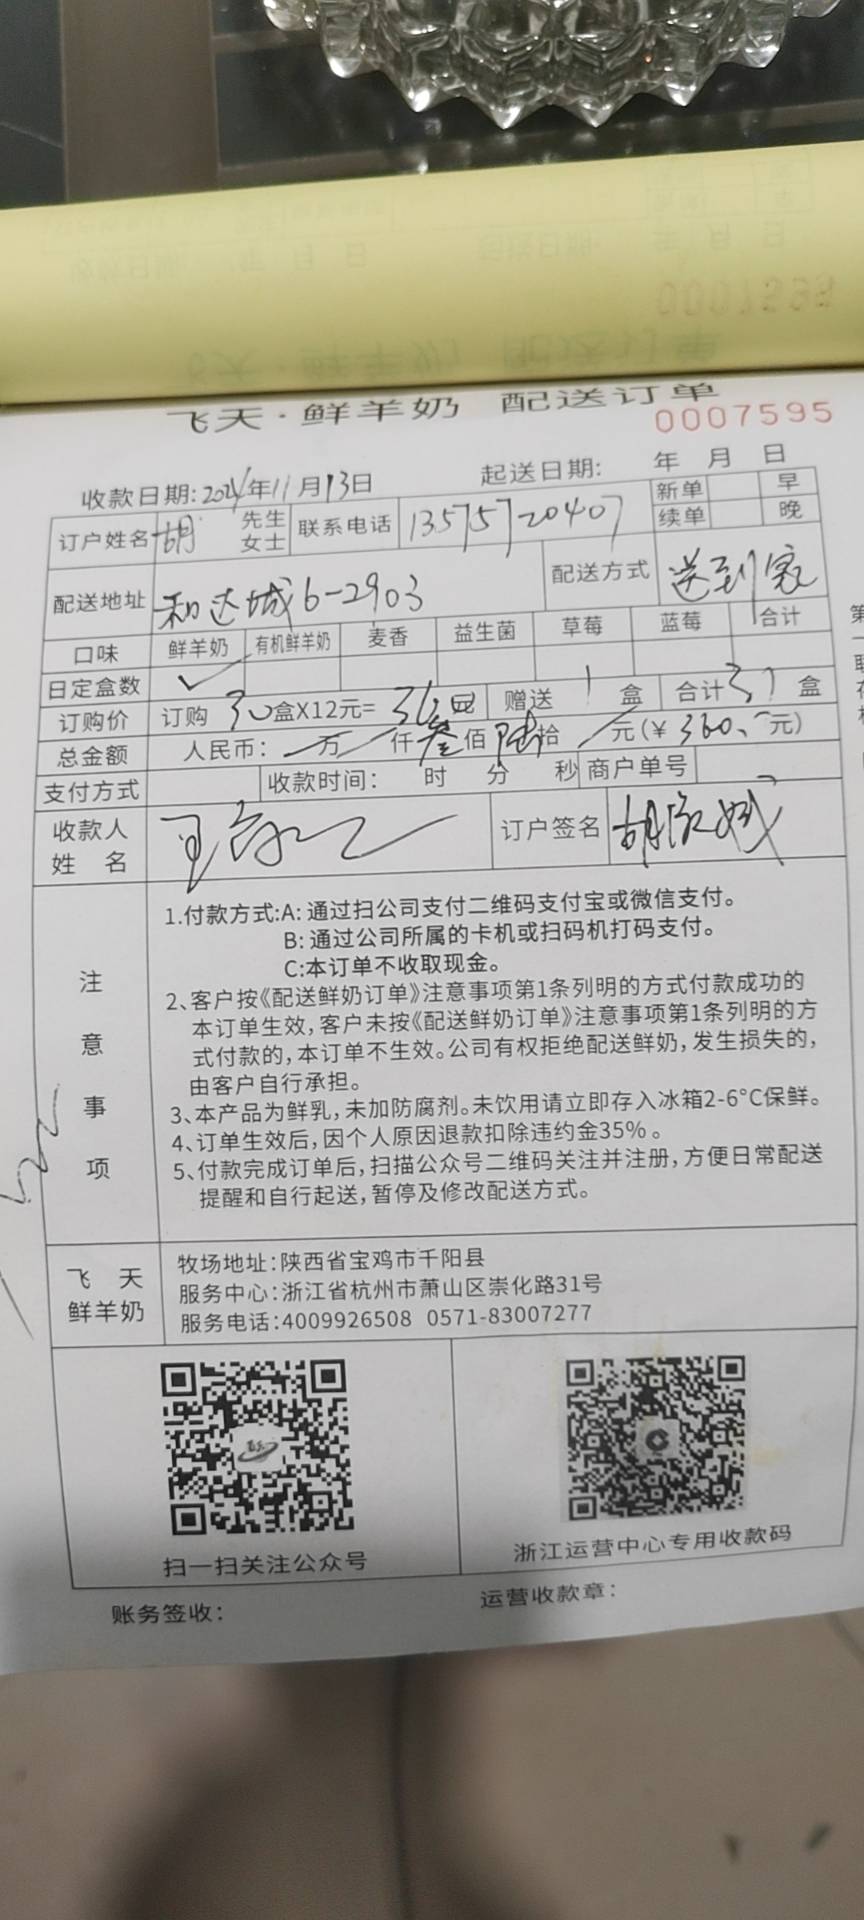 飞天·鲜羊奶 配送订单
0007595
收款日期:2024年11月13日 起送日期: 年 月 日
订户姓名 胡 先生 女士 联系电话 13575720407 新单 早 续单 晚
配送地址 和达城6-2903 配送方式 送到家
口味 鲜羊奶 有机鲜羊奶 麦香 益生菌 草莓 蓝莓 合计
日定盒数 ✓
订购价 订购 30盒X12元= 赠送 1 盒 合计31盒
总金额 人民币: 万 仟叁佰陆拾 元(¥ 360. 元)
支付方式 收款时间: 时 分 秒 商户单号
收款人 姓 名 订户签名 胡
注意事项
1.付款方式:A:通过扫公司支付二维码支付宝或微信支付。
B:通过公司所属的卡机或扫码机打码支付。
C:本订单不收取现金。
2、客户按《配送鲜奶订单》注意事项第1条列明的方式付款成功的
本订单生效,客户未按《配送鲜奶订单》注意事项第1条列明的方
式付款的,本订单不生效。公司有权拒绝配送鲜奶,发生损失的,
由客户自行承担。
3、本产品为鲜乳,未加防腐剂。未饮用请立即存入冰箱2-6°C保鲜。
4、订单生效后,因个人原因退款扣除违约金35%。
5、付款完成订单后,扫描公众号二维码关注并注册,方便日常配送
提醒和自行起送,暂停及修改配送方式。
飞天
鲜羊奶
牧场地址:陕西省宝鸡市千阳县
服务中心:浙江省杭州市萧山区崇化路31号
服务电话:4009926508 0571-83007277
扫一扫关注公众号 浙江运营中心专用收款码
账务签收: 运营收款章: